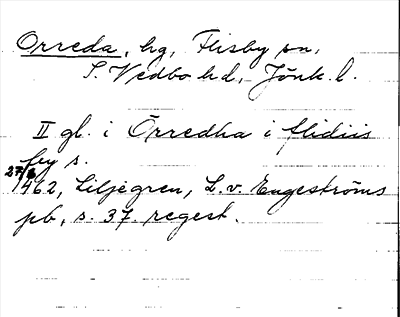 Orreda, hg, Flisby sn,
S. Vedbo hd, Jönk. l.
II gl. i Örredha i flidiis
fey s.
27/6
1462, Liljegren, L. v. Engeströms
pb, s. 37. regest.